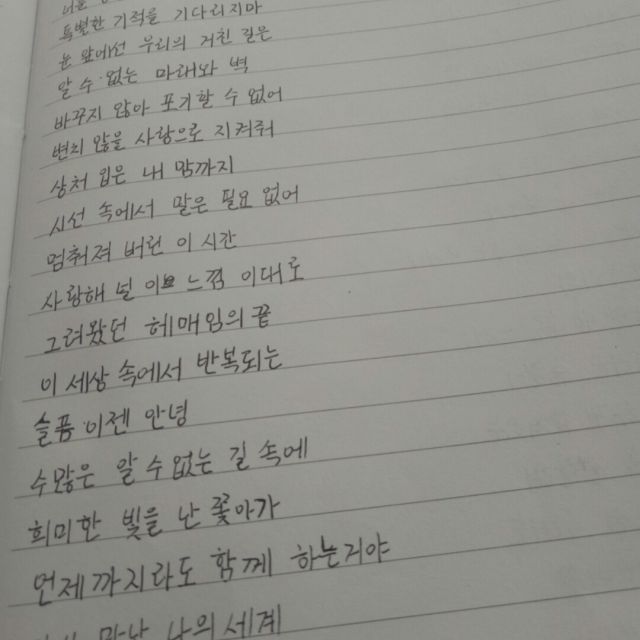 너를
특별한 기적을 기다리지마
눈 앞에선 우리의 거친 길은
알 수 없는 미래와 벽
바꾸지 않아 포기할 수 없어
변치 않을 사랑으로 지켜줘
상처 입은 내 맘까지
시선 속에서 말은 필요 없어
멈춰져 버린 이 시간
사랑해 널 이 느낌 이대로
그려왔던 헤매임의 끝
이 세상 속에서 반복되는
슬픔 이젠 안녕
수많은 알 수 없는 길 속에
희미한 빛을 난 쫓아가
언제까지라도 함께 하는거야
만난 나의 세계